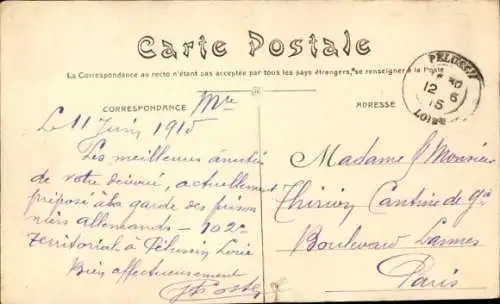 Carte Postale
La Correspondance au recto n'étant pas acceptée par tous les pays étrangers, se renseigner à la Poste
PELUSSIN
12 6
15
LOIRE
CORRESPONDANCE
ADRESSE
Le 11 Juin 1915
Les meilleures amitiés
de votre dévoué, actuellement
préposé à la garde des prison
niers allemands - 102e
territorial à Pélussin Loire
Bien affectueusement
Madame & Monsieur
Thirion Cantine de
Boulevard Lannes
Paris